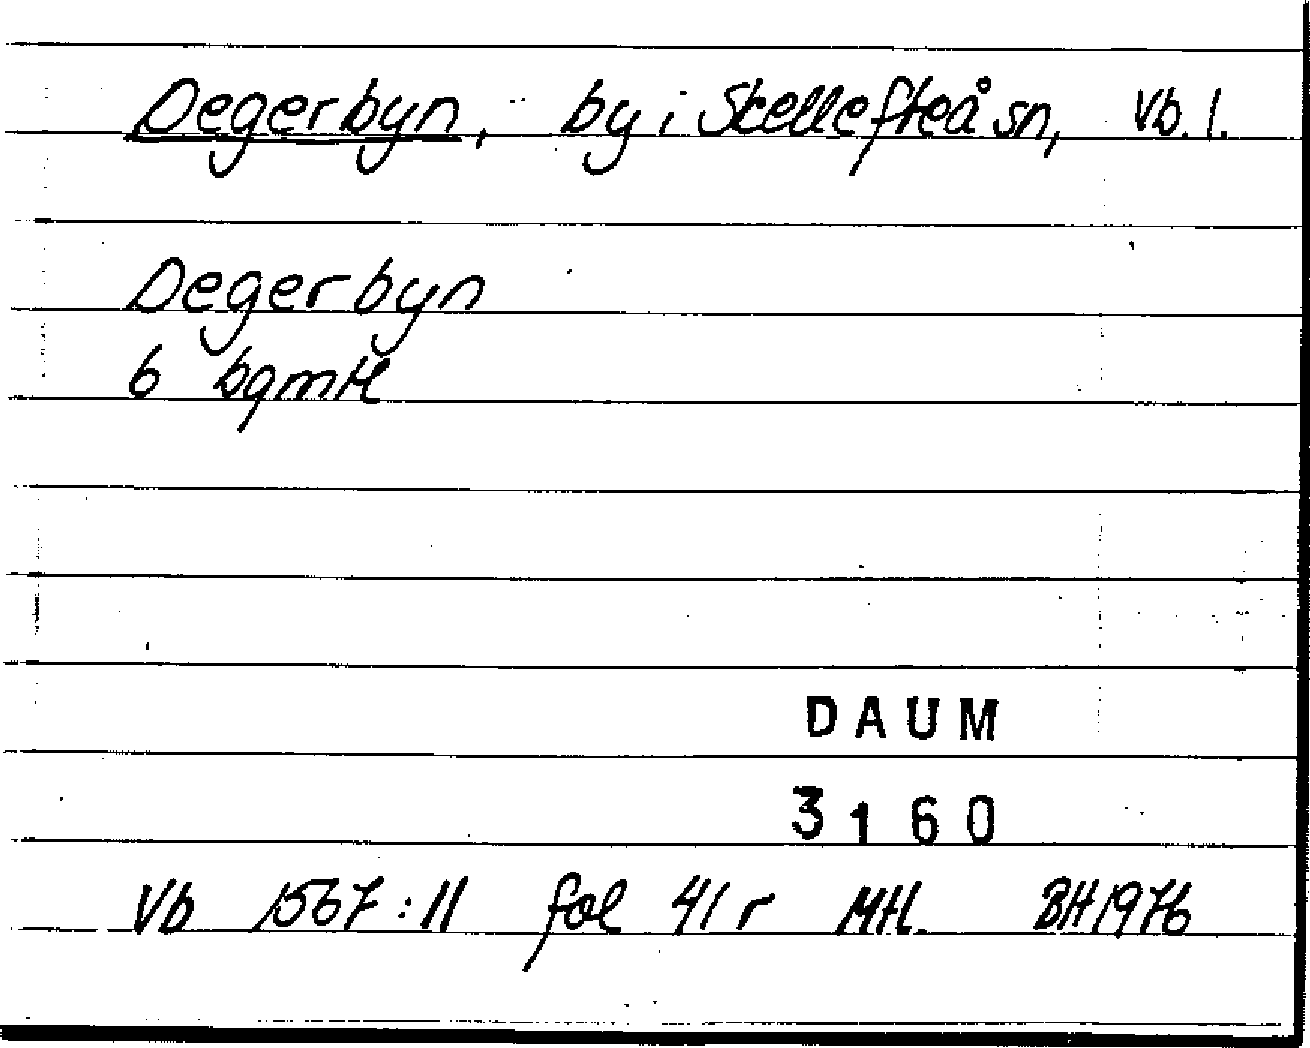 Degerbyn, by i Skellefteå sn, Vb. l.
Degerbyn
6 bgmtl
DAUM
3160
Vb 1567:11 fol 41 r Mtl. BH1976